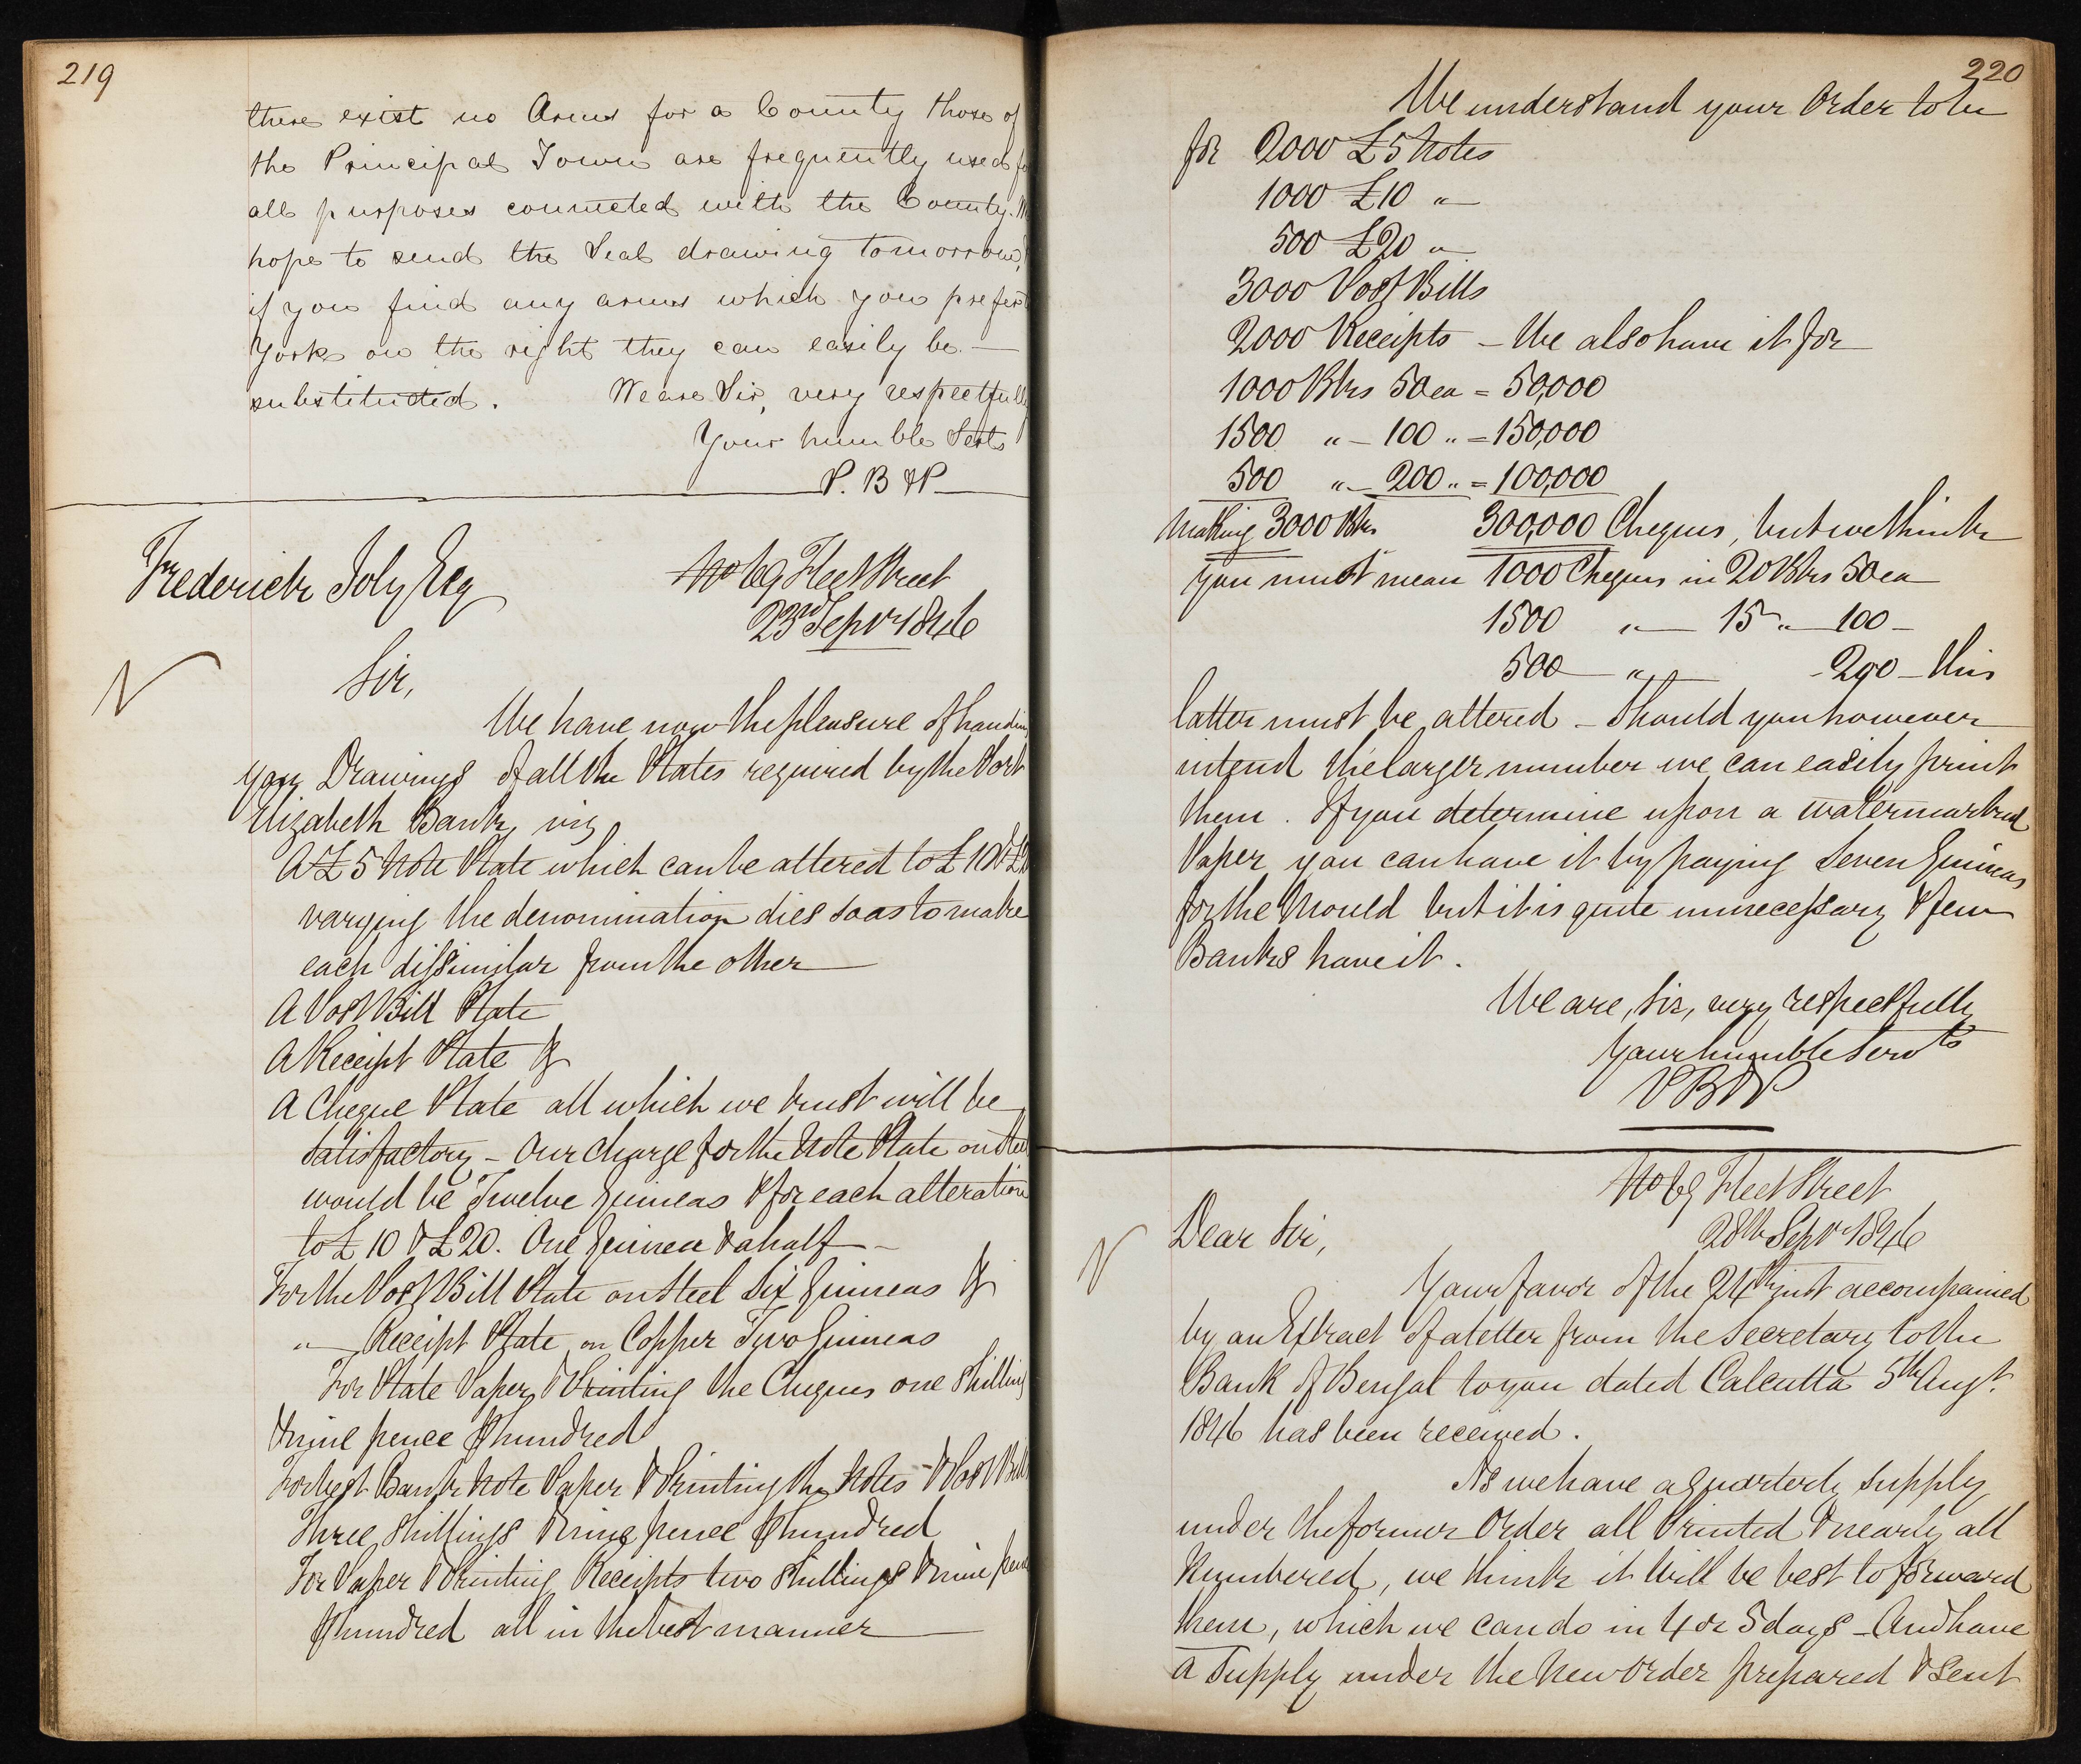 219
there exist no Arms for a County those of
the Principal Town are frequently used
all purposes connected with the County.
hope to send the Seal drawing tomorrow,
if you find any arms which you prefer
York on the right they can easily be —
substituted. We are Sir, very respectfully
Your humble Servts
P. B & P
Frederick Joly Esq
No 69 Fleet Street
23rd Septr 1846
Sir,
We have now the pleasure of handing
you Drawings of all the Plates required by the Port
Elizabeth Bank, viz
A £5 Note Plate which can be altered to £10 &
varying the denomination dies so as to make
each dissimilar from the other —
A Post Bill Plate
A Receipt Plate &
A Cheque Plate all which we trust will be
satisfactory – Our charge for the Note Plate on steel
would be Twelve Guineas & for each alteration
to £10 & £20. One Guinea & a half –
For the Post Bill Plate on Steel Six Guineas &
" — Receipt Plate on Copper Two Guineas
For Plate Paper & Printing the Cheques one Shilling
& nine pence ⅌ hundred
For best Bank Note Paper & Printing the Notes & Post Bills
Three Shillings & nine pence ⅌ hundred
For Paper & Printing Receipts two Shillings & nine pence
⅌ hundred all in the best manner —
220
We understand your Order to be
for 2000 £5 Notes
1000 £10 "
500 £20 "
3000 Post Bills
2000 Receipts – We also have it for
1000 Bks 50 ea = 50,000
1500 " – 100 " = 150,000
500 " – 200 " = 100,000
Making 3000 Bks 300,000 Cheques, but we think
you must mean 1000 Cheques in 20 Bks 50 ea
1500 " — 15 " — 100 –
500 — " — - 200 – this
latter must be altered – Should you however
intend the larger number we can easily print
them. If you determine upon a watermarked
Paper you can have it by paying Seven Guineas
for the Mould but it is quite unnecessary & few
Banks have it.
We are, Sir, very respectfully
Your humble Servts
P B & P
No 69 Fleet Street
28th Septr 1846
Dear Sir,
Your favor of the 24th inst accompanied
by an Extract of a letter from the Secretary to the
Bank of Bengal to you dated Calcutta 5th Augt.
1846 has been received.
As we have a quarterly supply
under the former Order all Printed & nearly all
Numbered, we think it will be best to forward
them, which we can do in 4 or 5 days – And have
a Supply under the New Order prepared & sent